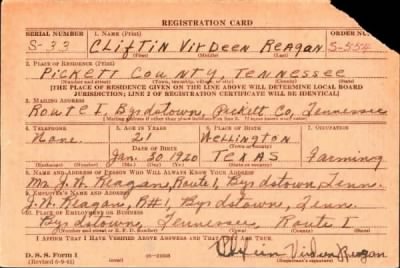 REGISTRATION CARD
SERIAL NUMBER 1. NAME (Print) ORDER NUMBER
S-33 CLIFTIN VIRDEEN REAGAN S-554
2. PLACE OF RESIDENCE (Print)
PICKETT COUNTY, TENNESSEE
[THE PLACE OF RESIDENCE GIVEN ON THE LINE ABOVE WILL DETERMINE LOCAL BOARD
JURISDICTION; LINE 2 OF REGISTRATION CERTIFICATE WILL BE IDENTICAL]
3. MAILING ADDRESS
Route I, Byrdstown, Pickett Co, Tennessee
4. TELEPHONE 5. AGE IN YEARS 6. PLACE OF BIRTH 7. OCCUPATION
None. 21 WELLINGTON
DATE OF BIRTH
Jan. 30 1920 TEXAS Farming
8. NAME AND ADDRESS OF PERSON WHO WILL ALWAYS KNOW YOUR ADDRESS
Mr. J. W. Reagan, Route 1, Byrdstown, Tenn.
9. EMPLOYER'S NAME AND ADDRESS
J. W. Reagan, R#1, Byrdstown, Tenn.
10. PLACE OF EMPLOYMENT OR BUSINESS
Byrdstown, Tennessee, Route I
I AFFIRM THAT I HAVE VERIFIED ABOVE ANSWERS AND THAT THEY ARE TRUE.
D. S. S. Form 1
(Revised 6-9-41) Reagan